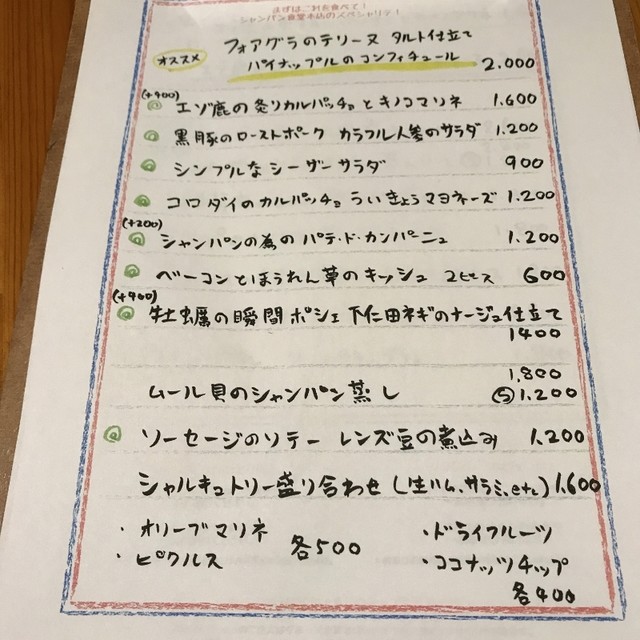 まずはこれを食べて！
シャンパン食堂本店のスペシャリテ！
オススメ フォアグラのテリーヌ タルト仕立て
パイナップルのコンフィチュール 2.000
(+400)
エゾ鹿の炙りカルパッチョとキノコマリネ 1.600
黒豚のローストポーク カラフル人参のサラダ 1.200
シンプルなシーザーサラダ 900
コロダイのカルパッチョ ういきょうマヨネーズ 1.200
(+200)
シャンパンの為の パテ・ド・カンパーニュ 1.200
ベーコンとほうれん草のキッシュ 2ピース 600
(+400)
牡蠣の瞬間ポシェ 下仁田ネギのナージュ仕立て
1400
1,800
ムール貝のシャンパン蒸し Ⓢ1.200
ソーセージのソテー レンズ豆の煮込み 1.200
シャルキュトリー盛り合わせ (生ハム、サラミ、etc) 1.600
・オリーブマリネ
・ピクルス 各500
・ドライフルーツ
・ココナッツチップ
各400